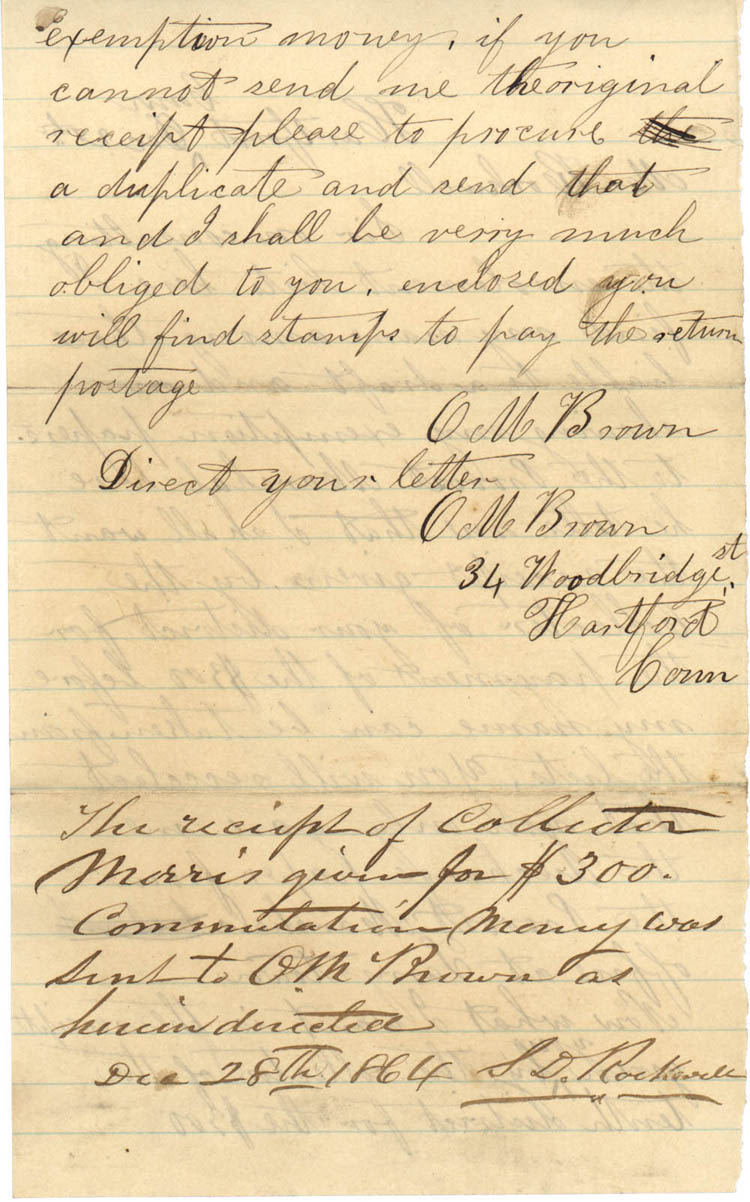 exemption money, if you
cannot send me the original
receipt please to procure the
a duplicate and send that
and I shall be verry much
obliged to you. enclosed you
will find stamps to pay the return
postage
O M Brown
Direct your letter
O M Brown
34 Woodbridge st.
Hartford
Conn
The receipt of Collector
Morris given for $300.
Commutation Money was
sent to O.M Brown as
herein directed
Dec 28th 1864 S. D. Rockwell